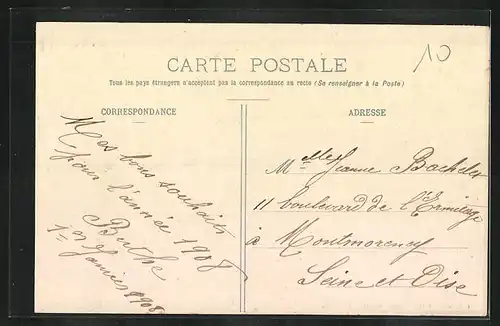 10
CARTE POSTALE
Tous les pays étrangers n'acceptent pas la correspondance au recto (Se renseigner à la Poste)
CORRESPONDANCE
ADRESSE
Mes bons souhaits
pour l'année 1908
Berthe
1er Janvier 1908
Melle Jeanne Bachelet
11 boulevard de l'Ermitage
à Montmorency
Seine et Oise